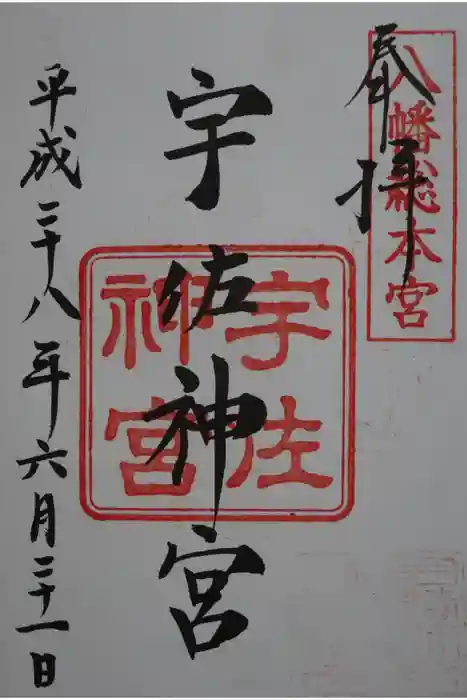 奉拝
八幡総本宮
宇佐神宮
宇佐神宮
平成二十八年六月二十一日